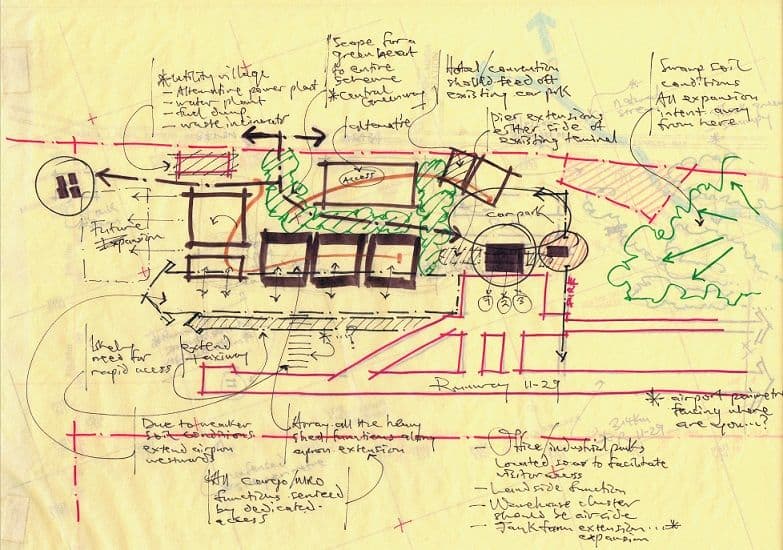 * utility village
- Alternative power plant
- water plant
- fuel dump
- waste incinerator
Scope for a
green heart
to entire
scheme
* Central
Greenway
Hotel convention
should feed off
existing car park
Pier extensions
either side of
existing terminal
Swamp soil
conditions
All expansion
intent away
from here
ACCESS
car park
Future
Expansion
FIRE
1 2 3
* ?
likely
need for
rapid access
extend
taxiway
Runway 11-29
* airport perimetre
facing where
are you...?
Due to weaker
soil conditions
extend apron
westwards
Array all the heavy
shed functions along
apron extension
All cargo/MRO
functions serviced
by dedicated
access
- Office/industrial parks
located so as to facilitate
visitor access
- Landside function
- Warehouse cluster
should be airside
- Tank farm extension... *
expansion